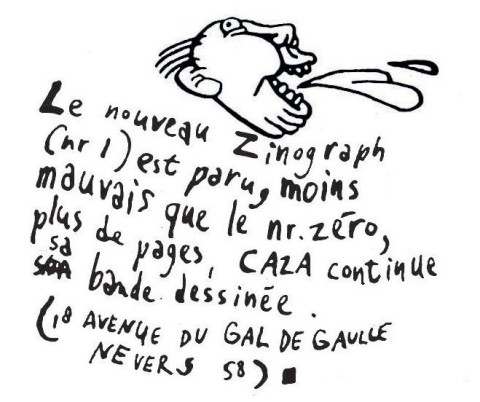 Le nouveau Zinograph
(nr 1) est paru, moins
mauvais que le nr. zéro,
plus de pages, CAZA continue
sa bande dessinée.
(18 AVENUE DU GAL DE GAULLE
NEVERS 58)